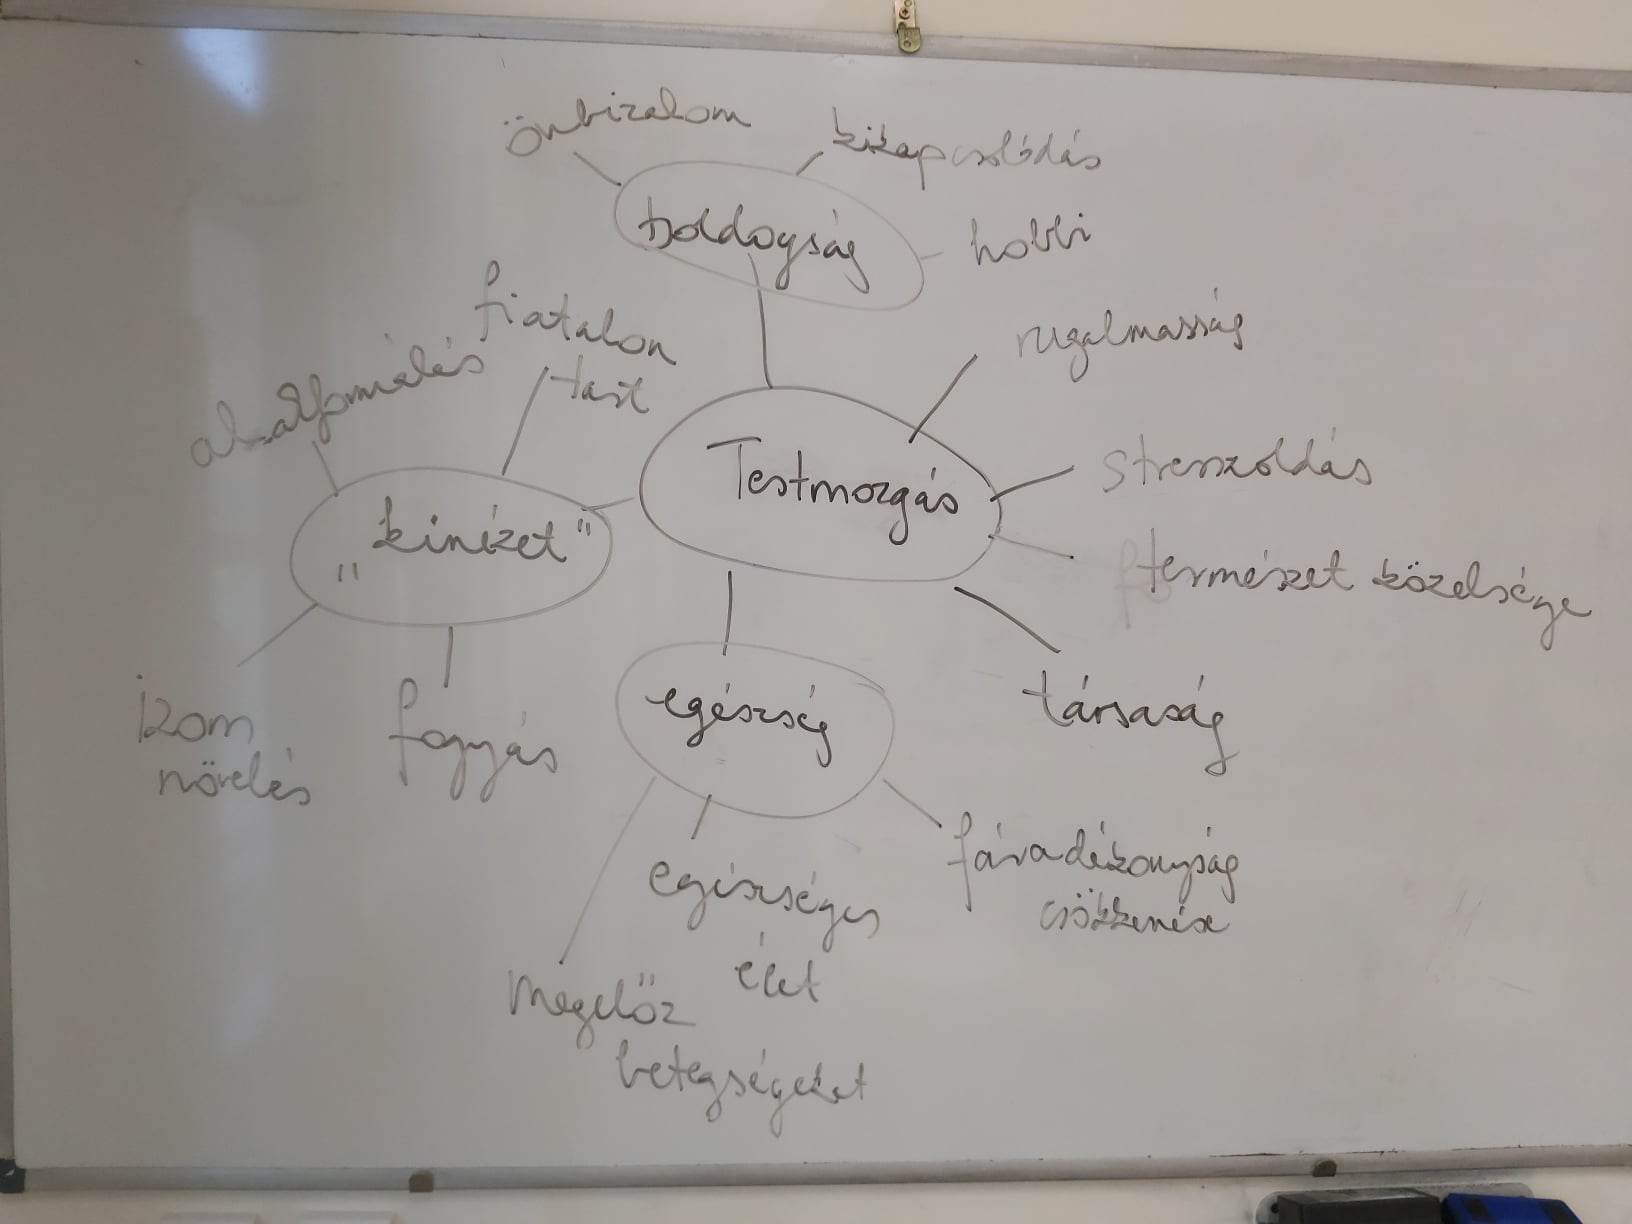 önbizalom
kikapcsolódás
boldogság
hobbi
fiatalon
tart
rugalmasság
alakformálás
Testmozgás
stresszoldás
„kinézet"
természet közelsége
izom
növelés
fogyás
egészség
társaság
fáradékonyság
csökkenése
egészséges
élet
megelőz
betegségeket